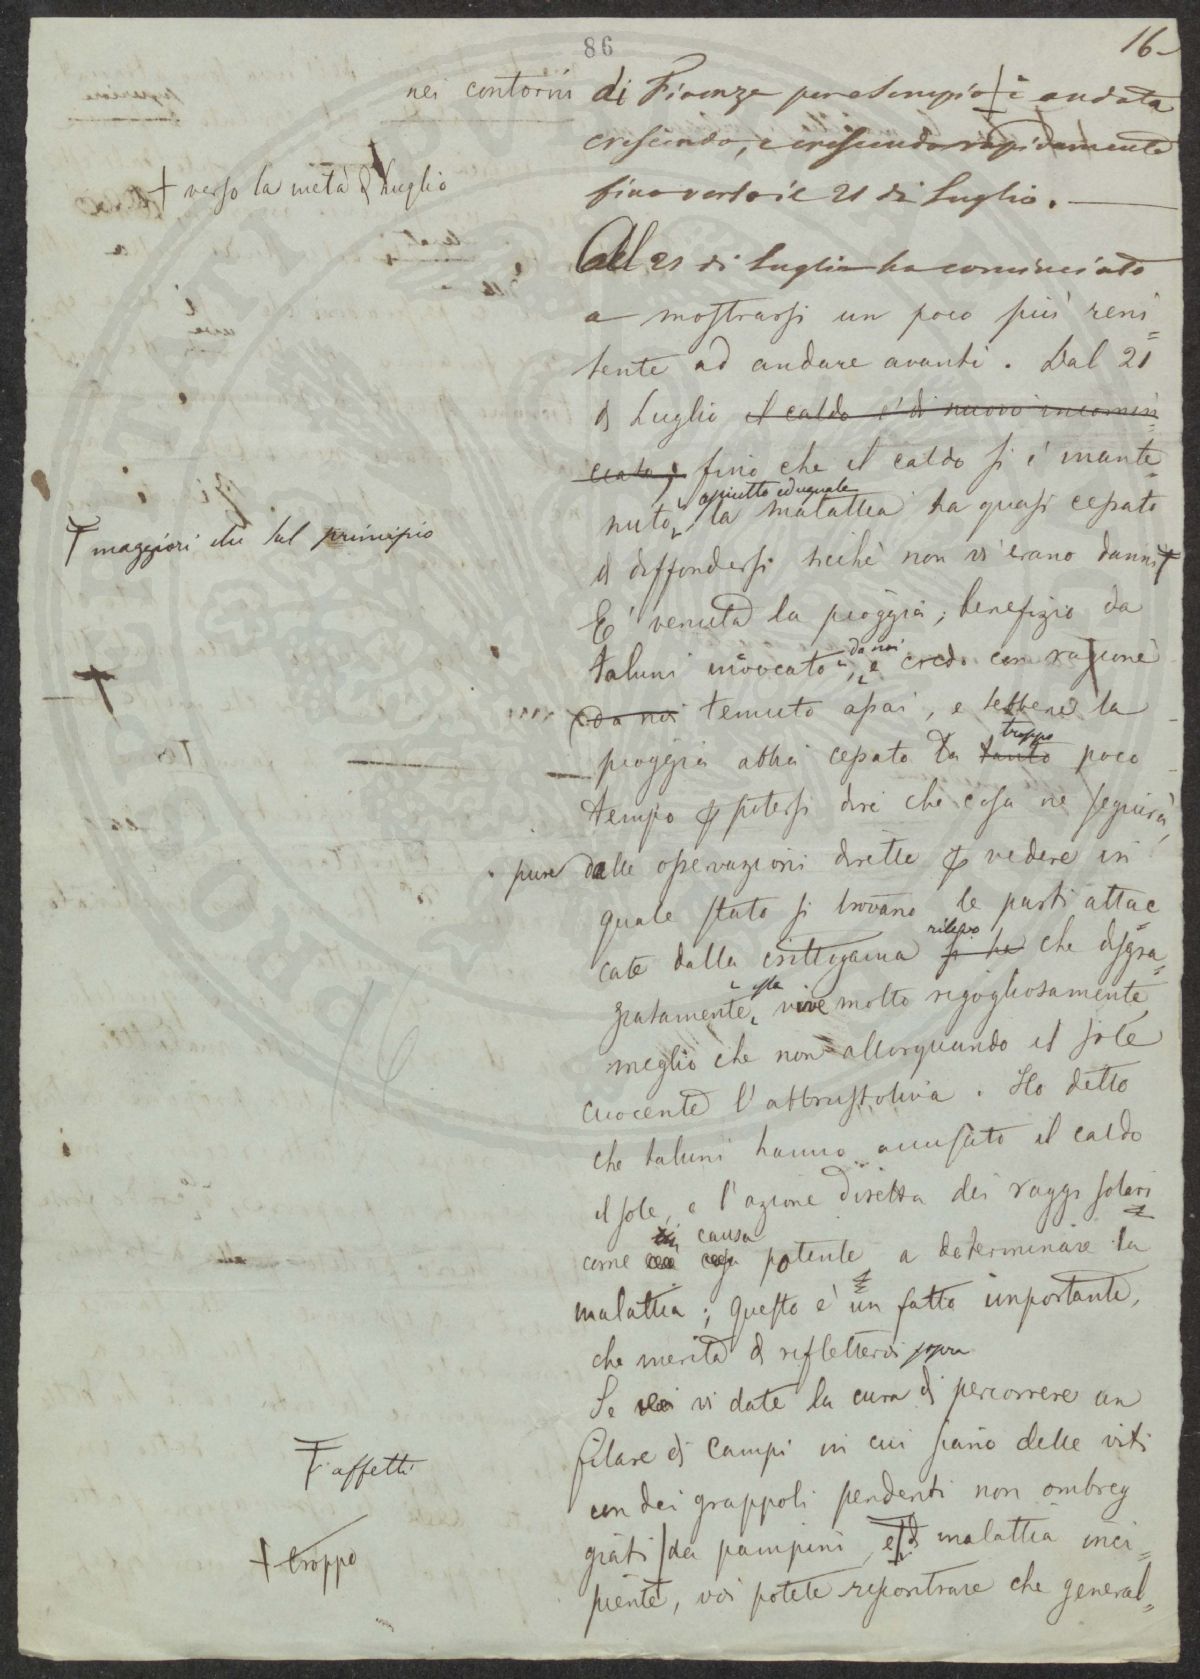 86
16
nei contorni di Firenze per esempio è andata
crescendo, e crescendo rapidamente
fino verso il 21 di Luglio.
+ verso la metà di Luglio
Al 21 di Luglio ha cominciato
a mostrarsi un poco più reni=
tente ad andare avanti. Dal 21
di Luglio il caldo è di nuovo incomin=
ciato, fino che il caldo si è mante=
nuto, asciutto ed uguale la malattia ha quasi cessato
+ maggiori che sul principio
di diffondersi sicchè non vi erano danni +
E' venuta la pioggia, benefizio da
taluni invocato, da noi e credo con ragione
da noi temuto assai, e sebbene la
pioggia abbia cessato da tanto troppo poco
tempo per potersi dire che cosa ne seguirà,
pure dalle osservazioni dirette per vedere in
quale stato si trovano le parti attac=
cate dalla crittogama si ha rilevo che disgra=
ziatamente, essa vive molto rigogliosamente
meglio che non allorquando il sole
cuocente l'abbrustoliva. Ho detto
che taluni hanno accusato il caldo
il sole, e l'azione diretta dei raggi solari
come causa potente a determinare la
malattia; questo è un fatto importante,
che merita di rifletterci sopra
Se vi date la cura di percorrere un
filare di campi in cui siano delle viti
+ affetti
con dei grappoli pendenti non ombreg
giati da pampini, e di malattia inci=
+ troppo
piente, voi potete riscontrare che general=